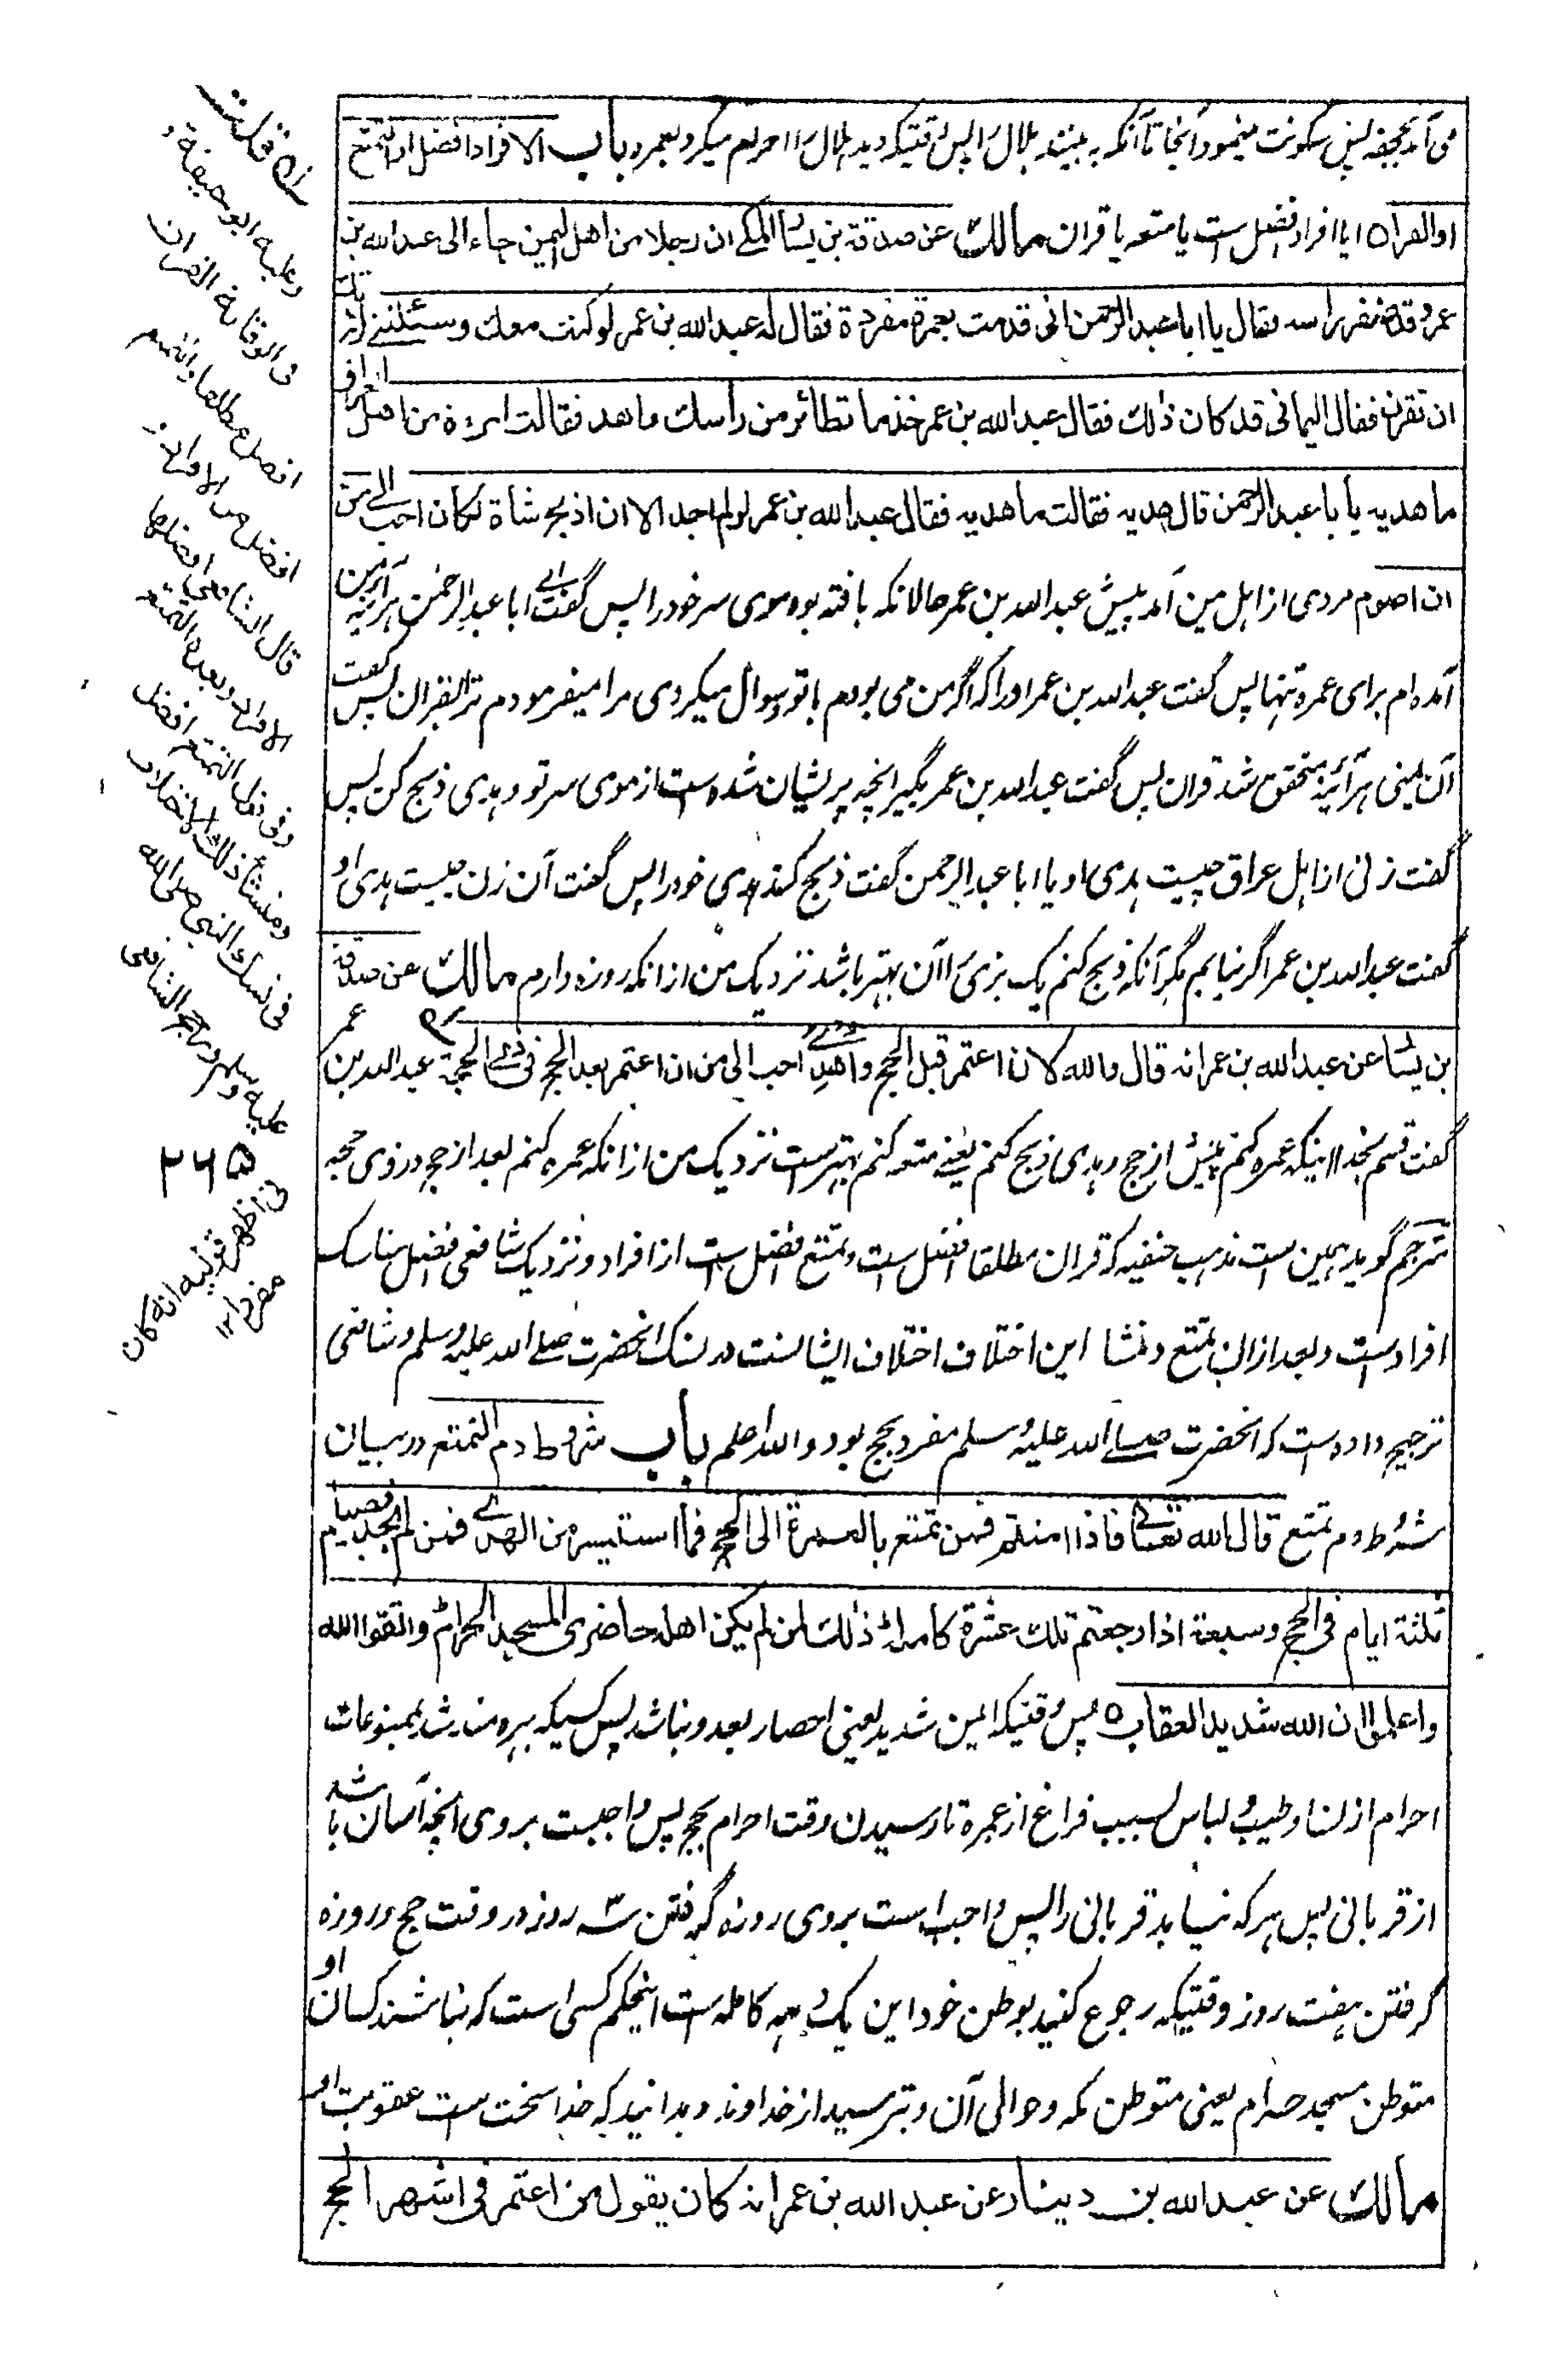 می آمد بجحفه پس سکونت مینمود آنجا تا آنکه به بیند هلال را پس وقتیکه دید هلال را احرام میکرد بعمره باب الافراد افضل او التمتع
او القران ایا افراد افضل ست یا متعه یا قران مالك عن صدقة بن یسار المکی ان رجلا من اهل الیمن جاء الی عبد الله بن
عمر وقد ضفر راسه فقال یا ابا عبد الرحمن انی قدمت بعمرة مفردة فقال له عبد الله بن عمر لو کنت معك وسئلتنی لامرتك
ان تقرن فقال الیمانی قد کان ذلك فقال عبد الله بن عمر خذ ما تطائر من رأسك واهد فقالت امرءة من اهل العراق
ما هدیه یا با عبد الرحمن قال هدیه فقالت ما هدیه فقال عبد الله بن عمر لو لم اجد الا ان اذبح شاة لکان احب الی من
ان اصوم مردی از اهل یمن آمد پیش عبد الله بن عمر حالانکه بافته بود موی سر خود را پس گفت ای ابا عبد الرحمن هر آئینه من
آمده ام برای عمره تنها پس گفت عبد الله بن عمر او را که اگر من می بودم با تو و سوال میکردی مرا میفرمودم ترا بقران پس گفت
آن یمنی هر آئینه متحقق شد قران پس گفت عبد الله بن عمر بگیر انچه پریشان شده است از موی سر تو و هدی ذبح کن پس
گفت زنی از اهل عراق چیست هدی او یا ابا عبد الرحمن گفت ذبح کند هدی خود را پس گفت آن زن چیست هدی او
گفت عبد الله بن عمر اگر نیابم مگر آنکه ذبح کنم یک بزی را آن بهتر باشد نزدیک من ازانکه روزه دارم مالك عن صدقة
بن یسار عن عبد الله بن عمر انه قال والله لان اعتمر قبل الحج واهدی احب الی من ان اعتمر بعد الحج فی ذی الحجة عبد الله بن عمر
گفت قسم بخدا اینکه عمره کنم پیش از حج و هدی ذبح کنم یعنے متعه کنم بهتر ست نزدیک من ازانکه عمره کنم بعد از حج در ذی حجه
مترجم گوید همین ست مذهب حنفیه که قران مطلقا افضل ست و تمتع افضل ست از افراد و نزدیک شافعی افضل مناسک
افراد ست و بعد ازان تمتع و منشا این اختلاف اختلاف ایشانست در نسک انحضرت صلے الله علیه وسلم و شافعی
ترجیح داده ست که انحضرت صلے الله علیه وسلم مفرد بحج بود و الله اعلم باب شروط دم التمتع در بیان
شروط دم تمتع قال الله تعالی فاذا امنتم فمن تمتع بالعمرة الی الحج فما استیسر من الهدی فمن لم یجد فصیام
ثلثة ایام فی الحج وسبعة اذا رجعتم تلك عشرة کاملة ذلك لمن لم یکن اهله حاضری المسجد الحرام واتقوا الله
واعلموا ان الله شدید العقاب پس وقتیکه ایمن شدید یعنی احصار بعدو نباشد پس کسیکه بهره مند شد بممنوعات
احرام از نسا و طیب و لباس بسبب فراغ از عمره تا رسیدن وقت احرام بحج پس واجبست بر وی انچه آسان باشد
از قربانی پس هر که نیابد قربانی را پس واجب است بر وی روزه گرفتن سه روز در وقت حج و روزه
گرفتن هفت روز وقتیکه رجوع کنید بوطن خود این یک دهه کامله ست اینحکم کسی است که نباشند کسان او
متوطن مسجد حرام یعنی متوطن مکه و حوالی آن و بترسید از خداوند و بدانید که خدا سخت ست عقوبت او
مالك عن عبد الله بن دینار عن عبد الله بن عمر انه کان یقول من اعتمر فی اشهر الحج
قلت
وعلیه ابو حنیفة
فی الوقایة القران
افضل مطلقا والتمتع
افضل من الافراد
قال الشافعی افضلها
الافراد وبعده التمتع
وفی قول التمتع افضل
ومنشأ ذلك الاختلاف
فی نسك النبی صلی الله
علیه وسلم ورجح الشافعی
۲۶۵
فی اظهر قولیه انه کان
مفردا